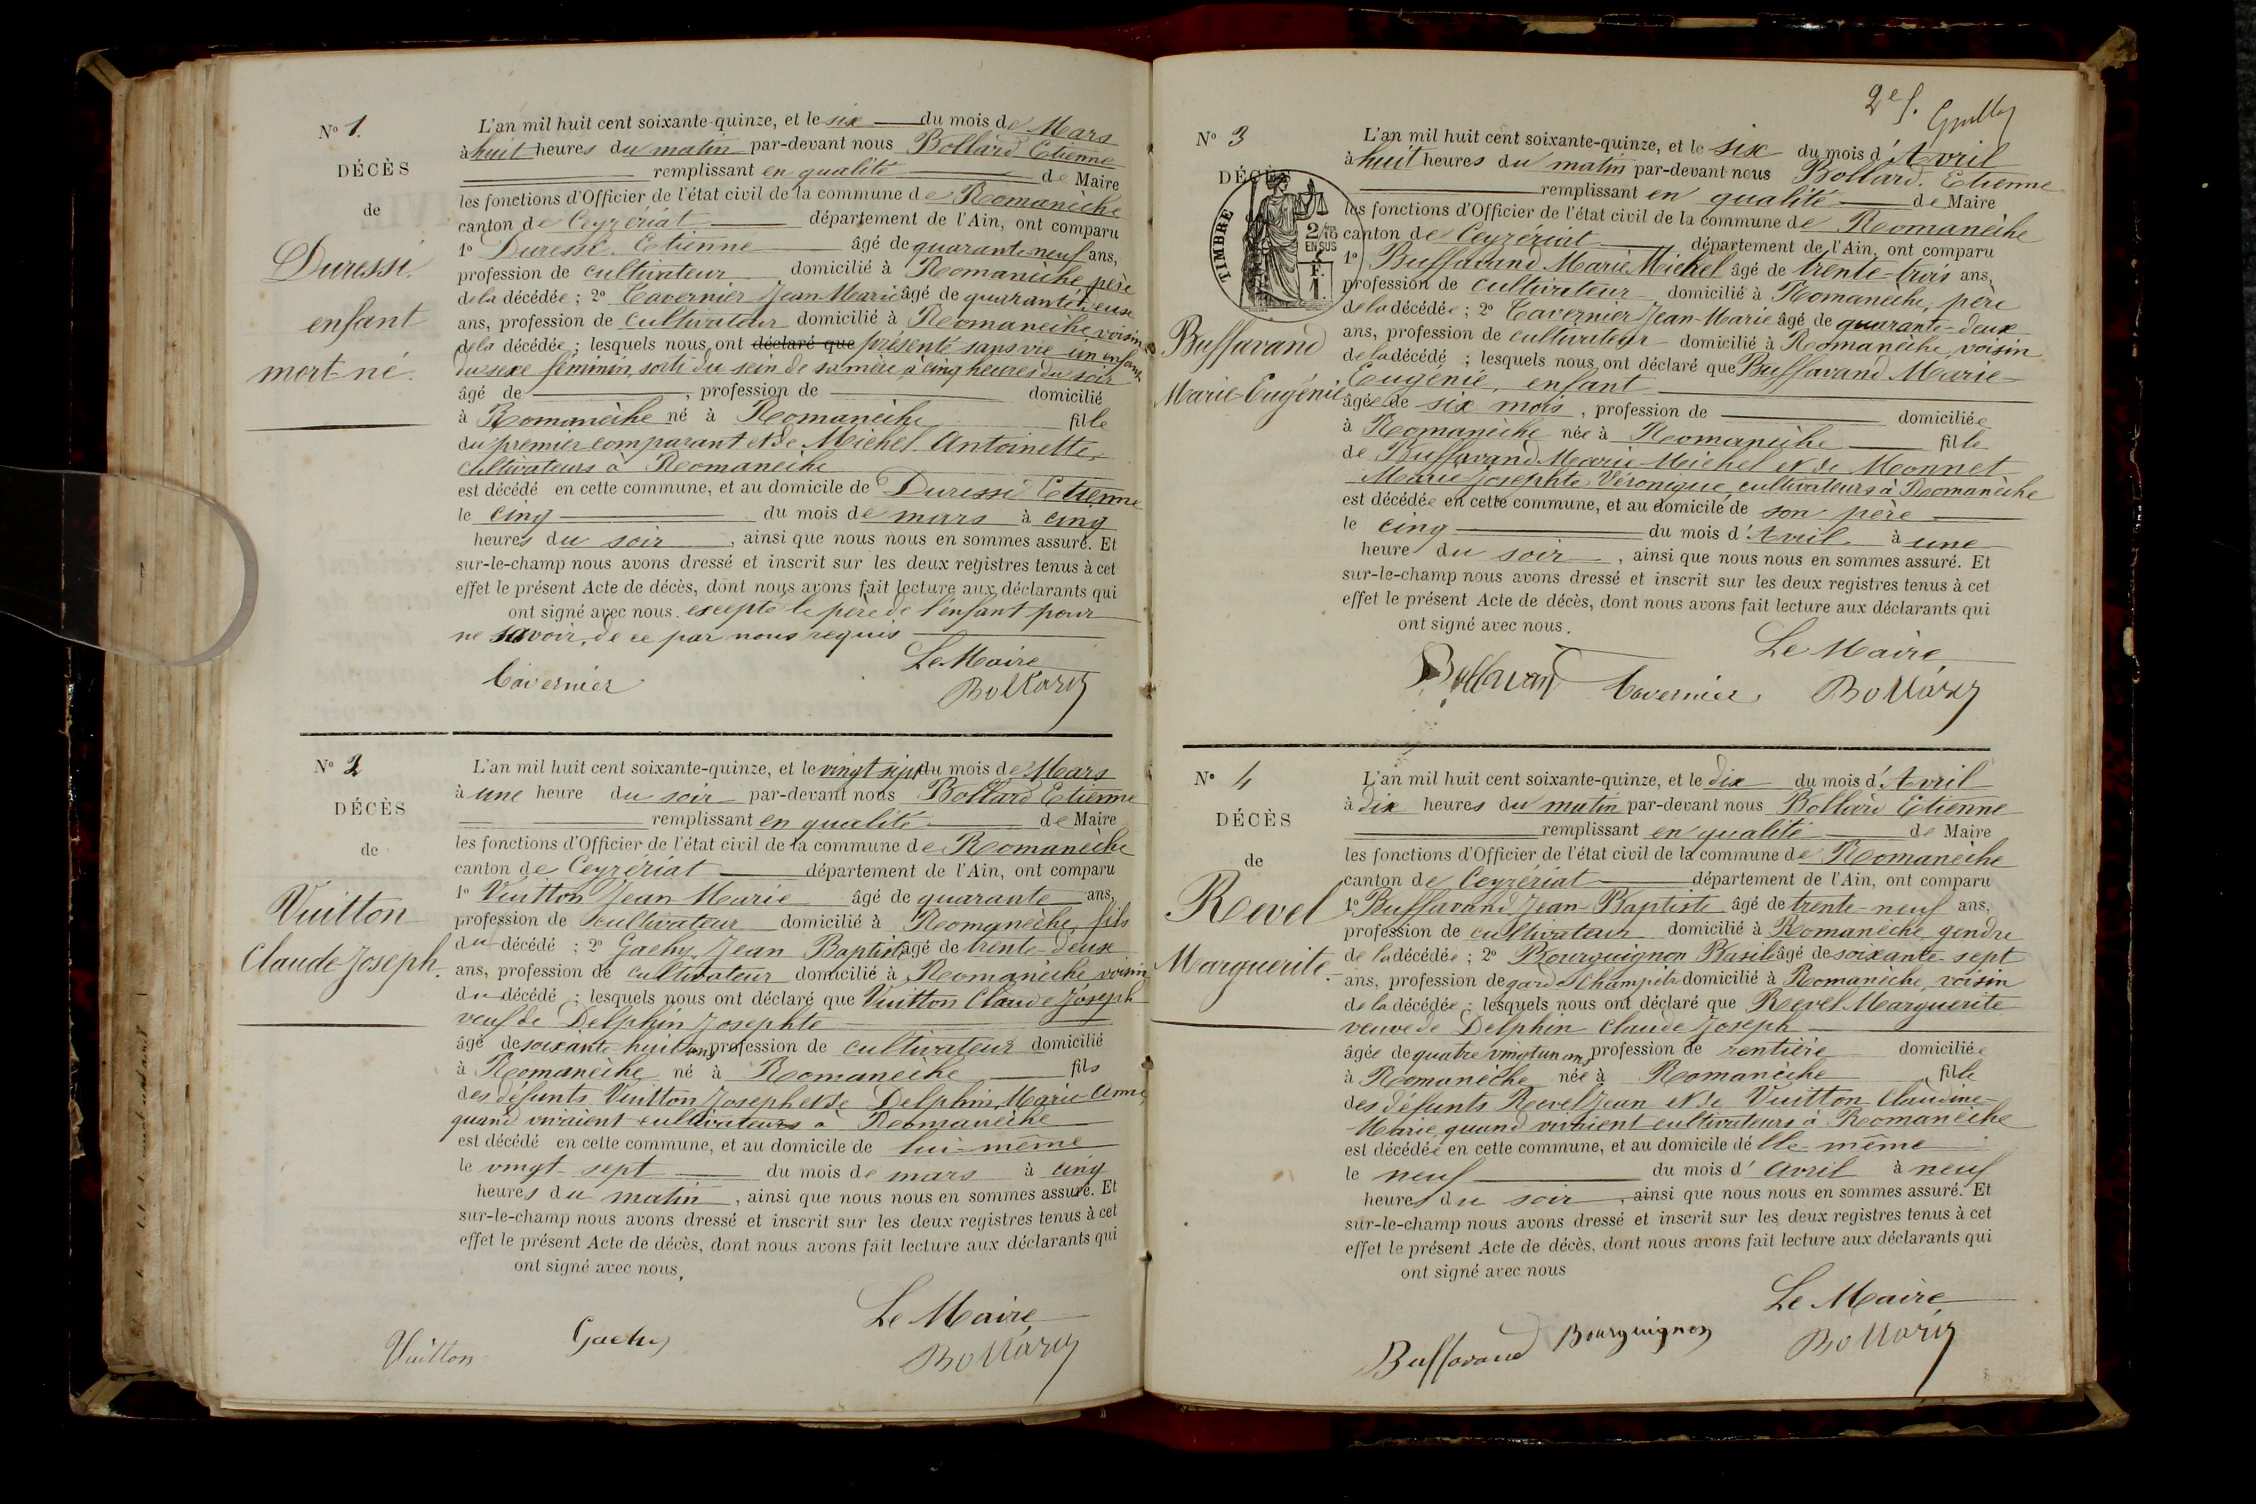 N° 1.
DÉCÈS
de
Duressi
enfant
mort-né.
L'an mil huit cent soixante-quinze, et le six du mois de Mars
à huit heures du matin par-devant nous Bollard Etienne
remplissant en qualité de Maire
les fonctions d'Officier de l'état civil de la commune de Romanèche
canton de Ceyzériat département de l'Ain, ont comparu
1° Duressi Etienne âgé de quarante neuf ans,
profession de cultivateur domicilié à Romanèche, père
de la décédée ; 2° Tavernier Jean-Marie âgé de quarante deux
ans, profession de cultivateur domicilié à Romanèche voisin
de la décédée ; lesquels nous ont déclaré que présenté sans vie un enfant
du sexe féminin, sorti du sein de sa mère, à cinq heures du soir
âgé de , profession de domicilié
à Romanèche né à Romanèche fille
du premier comparant et de Michel Antoinette,
cultivateurs à Romanèche
est décédé en cette commune, et au domicile de Duressi Etienne
le cinq du mois de mars à cinq
heures du soir , ainsi que nous nous en sommes assuré. Et
sur-le-champ nous avons dressé et inscrit sur les deux registres tenus à cet
effet le présent Acte de décès, dont nous avons fait lecture aux déclarants qui
ont signé avec nous. excepté le père de l'enfant pour
ne savoir, de ce par nous requis
Le Maire
Tavernier Bollard
N° 2
DÉCÈS
de
Vuitton
Claude-Joseph.
L'an mil huit cent soixante-quinze, et le vingt sept du mois de Mars
à une heure du soir par-devant nous Bollard Etienne
remplissant en qualité de Maire
les fonctions d'Officier de l'état civil de la commune de Romanèche
canton de Ceyzériat département de l'Ain, ont comparu
1° Vuitton Jean Marie âgé de quarante ans,
profession de cultivateur domicilié à Romanèche, fils
du décédé ; 2° Gachy Jean Baptiste âgé de trente-deux
ans, profession de cultivateur domicilié à Romanèche voisin
du décédé ; lesquels nous ont déclaré que Vuitton Claude Joseph
veuf de Delphin Josephte
âgé de soixante huit ans profession de cultivateur domicilié
à Romanèche né à Romanèche fils
des défunts Vuitton Joseph et de Delphin, Marie-Anne,
quand vivaient cultivateurs à Romanèche
est décédé en cette commune, et au domicile de lui-même
le vingt-sept du mois de mars à cinq
heures du matin , ainsi que nous nous en sommes assuré. Et
sur-le-champ nous avons dressé et inscrit sur les deux registres tenus à cet
effet le présent Acte de décès, dont nous avons fait lecture aux déclarants qui
ont signé avec nous.
Le Maire
Vuitton Gachy Bollard
2e f.
N° 3
DÉCÈS
TIMBRE
2/10
EN SUS
F.
1.
Buffavand
Marie-Eugénie
L'an mil huit cent soixante-quinze, et le six du mois d'Avril
à huit heures du matin par-devant nous Bollard. Etienne
remplissant en qualité de Maire
les fonctions d'Officier de l'état civil de la commune de Romanèche
canton de Ceyzériat département de l'Ain, ont comparu
1° Buffavand Marie Michel âgé de trente-trois ans,
profession de cultivateur domicilié à Romanèche, père
de la décédée ; 2° Tavernier Jean-Marie âgé de quarante-deux
ans, profession de cultivateur domicilié à Romanèche, voisin
de la décédé ; lesquels nous ont déclaré que Buffavand Marie-
Eugénie, enfant
âgée de six mois , profession de domiciliée
à Romanèche née à Romanèche fille
de Buffavand Marie Michel et de Monnet
Marie Josephte Véronique cultivateurs à Romanèche
est décédée en cette commune, et au domicile de son père
le cinq du mois d'Avril à une
heure du soir , ainsi que nous nous en sommes assuré. Et
sur-le-champ nous avons dressé et inscrit sur les deux registres tenus à cet
effet le présent Acte de décès, dont nous avons fait lecture aux déclarants qui
ont signé avec nous.
Le Maire
Buffavand Tavernier Bollard
N° 4
DÉCÈS
de
Revel
Marguerite
L'an mil huit cent soixante-quinze, et le dix du mois d'Avril
à dix heures du matin par-devant nous Bollard Etienne
remplissant en qualité de Maire
les fonctions d'Officier de l'état civil de la commune de Romanèche
canton de Ceyzériat département de l'Ain, ont comparu
1° Buffavand Jean-Baptiste âgé de trente-neuf ans,
profession de cultivateur domicilié à Romanèche gendre
de la décédée ; 2° Bourguignon Basile âgé de soixante-sept
ans, profession de garde champêtre domicilié à Romanèche, voisin
de la décédée ; lesquels nous ont déclaré que Revel Marguerite
veuve de Delphin Claude Joseph
âgée de quatre vingt un ans profession de rentière domiciliée
à Romanèche née à Romanèche fille
des défunts Revel Jean et de Vuitton Claudine-
Marie, quand vivaient cultivateurs à Romanèche
est décédée en cette commune, et au domicile d'elle-même
le neuf du mois d'avril à neuf
heures du soir , ainsi que nous nous en sommes assuré. Et
sur-le-champ nous avons dressé et inscrit sur les deux registres tenus à cet
effet le présent Acte de décès, dont nous avons fait lecture aux déclarants qui
ont signé avec nous
Le Maire
Buffavand Bourguignon Bollard